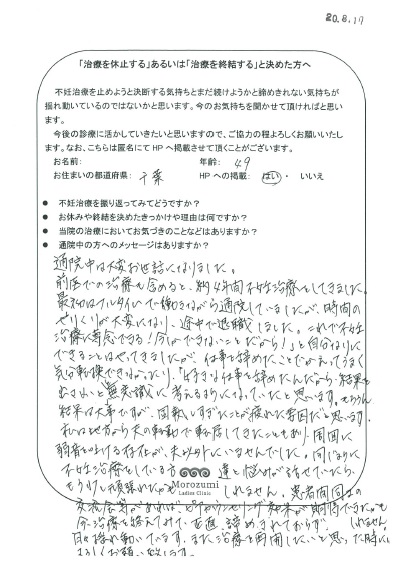 20.8.19
「治療を休止する」あるいは「治療を終結する」と決めた方へ
不妊治療を止めようと決断する気持ちとまだ続けようかと諦めきれない気持ちが
揺れ動いているのではないかと思います。今のお気持ちを聞かせて頂ければと思い
ます。
今後の診療に活かしていきたいと思いますので、ご協力の程よろしくお願いいたし
ます。なお、こちらは匿名にて HP へ掲載させて頂くことがございます。
お名前: 年齢: 49
お住まいの都道府県: 千葉 HP への掲載: はい ・ いいえ
● 不妊治療を振り返ってみてどうですか?
● お休みや終結を決めたきっかけや理由は何ですか?
● 当院の治療においてお気づきのことなどはありますか?
● 通院中の方へのメッセージはありますか?
通院中は大変お世話になりました。
前医での治療も含めると、約4年間不妊治療をしてきました。
最初はフルタイムで働きながら通院していましたが、時間の
やりくりが大変になり、途中で退職しました。これで不妊
治療に専念できる!今しかできないことだから!」と自分なりに
できることはやってきましたが、仕事を辞めたことでかえってうまく
気分転換できなかったり、「好きな仕事を辞めたんだから、結果を
出さないと」と無意識に考えるようになっていたと思います。もちろん
結果は大事ですが、固執しすぎたことが疲れた要因だと思います。
私は地方から夫の転勤で転居してきたこともあり、周囲に
弱音を吐ける存在が、夫以外にいませんでした。同じように
不妊治療をしている方達と悩みが話せていたら、
もう少し頑張れたかもしれません。患者同士の
交流会等があれば、ピアカウンセリング効果が期待できたかも
しれません。
今治療を終えてみて、正直、諦めきれておらず、
日々揺れ動いています。また治療を再開したいと思った時に
よろしくお願い致します。
Morozumi
Ladies Clinic